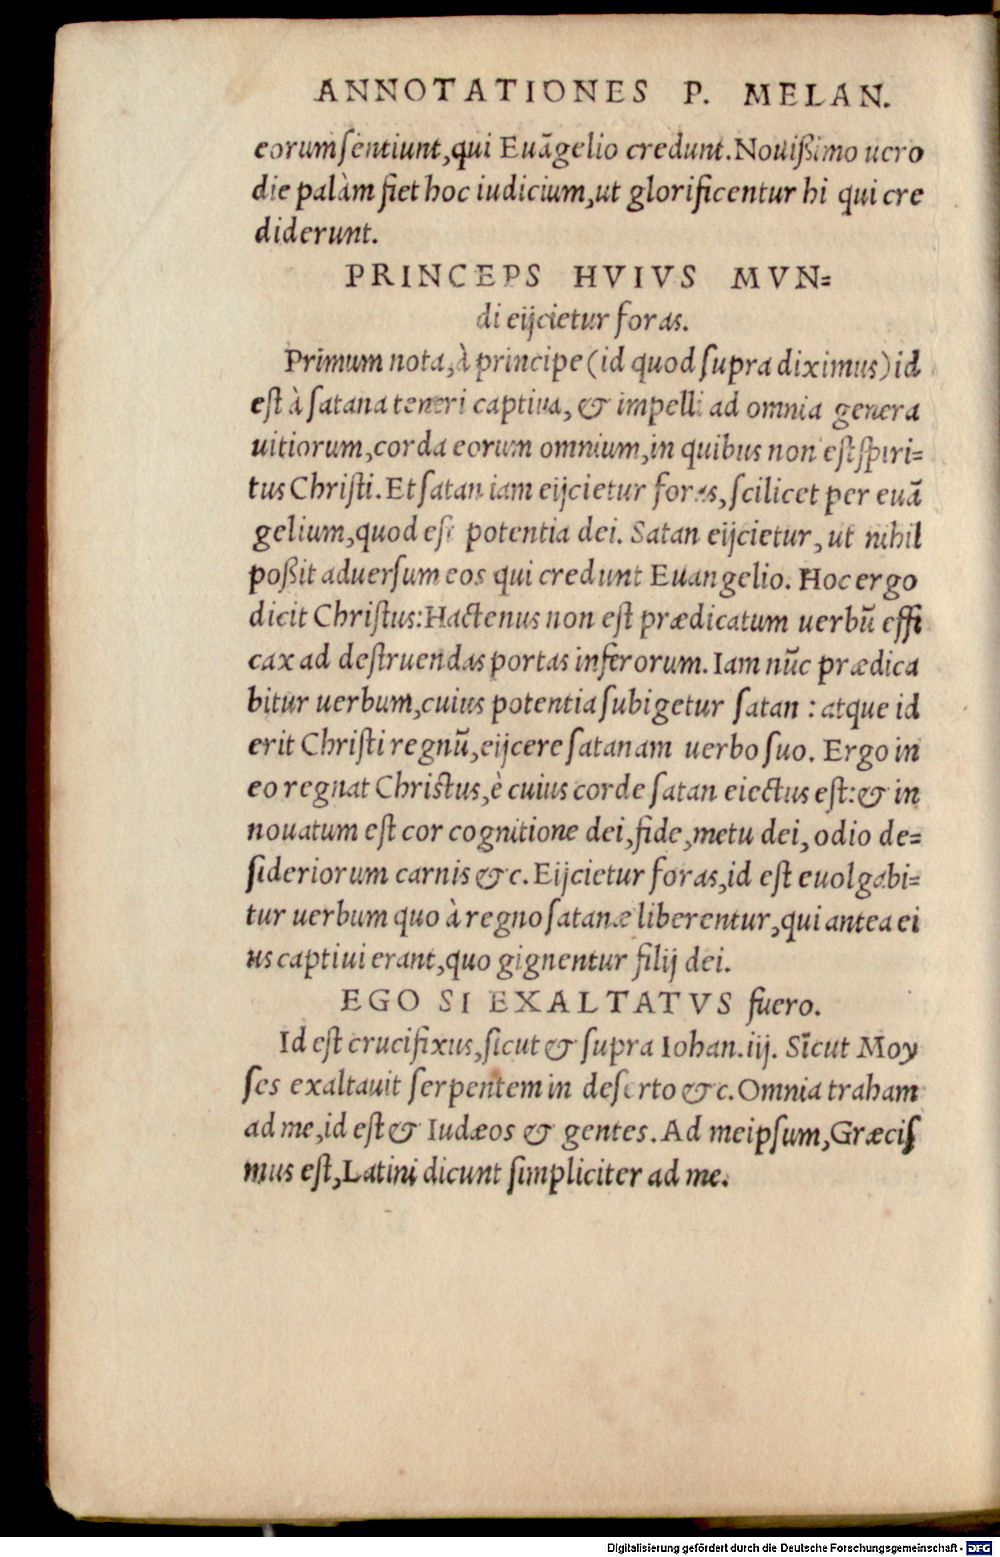 ANNOTATIONES P. MELAN.
eorum ſentiunt, qui Euãgelio credunt. Nouißimo uero
die palàm fiet hoc iudicium, ut glorificentur hi qui cre
diderunt.
PRINCEPS HVIVS MVN=
di eijcietur foras.
Primum nota, à principe (id quod ſupra diximus) id
eſt à ſatana teneri captiua, & impelli ad omnia genera
uitiorum, corda eorum omnium, in quibus non eſt ſpiri=
tus Chriſti. Et ſatan iam eijcietur foras, ſcilicet per euã
gelium, quod eſt potentia dei. Satan eijcietur, ut nihil
poßit aduerſum eos qui credunt Euangelio. Hoc ergo
dicit Chriſtus: Hactenus non eſt prædicatum uerbũ effi
cax ad deſtruendas portas inferorum. Iam nũc prædica
bitur uerbum, cuius potentia ſubigetur ſatan : atque id
erit Chriſti regnũ, eijcere ſatanam uerbo ſuo. Ergo in
eo regnat Christus, è cuius corde ſatan eiectus eſt: & in
nouatum eſt cor cognitione dei, fide, metu dei, odio de=
ſideriorum carnis &c. Eijcietur foras, id eſt euolgabi=
tur uerbum quo à regno ſatanæ liberentur, qui antea ei
us captiui erant, quo gignentur filij dei.
EGO SI EXALTATVS fuero.
Id eſt crucifixus, ſicut & ſupra Iohan. iij. Sĩcut Moy
ſes exaltauit ſerpentem in deſerto &c. Omnia traham
ad me, id eſt & Iudæos & gentes. Ad meipſum, Græciſ
mus eſt, Latini dicunt ſimpliciter ad me.
Digitalisierung gefördert durch die Deutsche Forschungsgemeinschaft - DFG